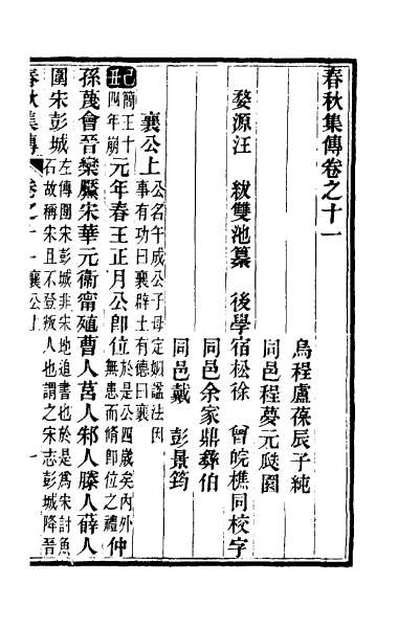 春秋集傳卷之十一
烏程盧葆辰子純
婺源汪　紱雙池纂　後學宿松徐　曾皖樵同校字
同邑程夢元
同邑余家鼎彝伯
同邑戴　彭景筠
襄公上
公名午成公子母定姒謚法因
事有功曰襄辟土有德曰襄
己丑
簡王十
四年崩
元年春王正月公卽位
於是公四歲矣內外
無患而脩卽位之禮
仲
孫蔑會晉欒黶宋華元衞甯殖曹人莒人邾人滕人薛人
圍宋彭城
左傳圍宋彭城非宋地追書也於是爲宋討魚
石故稱宋且不登叛人也謂之宋志彭城降晉
春秋集傳
卷之十一襄公上
一